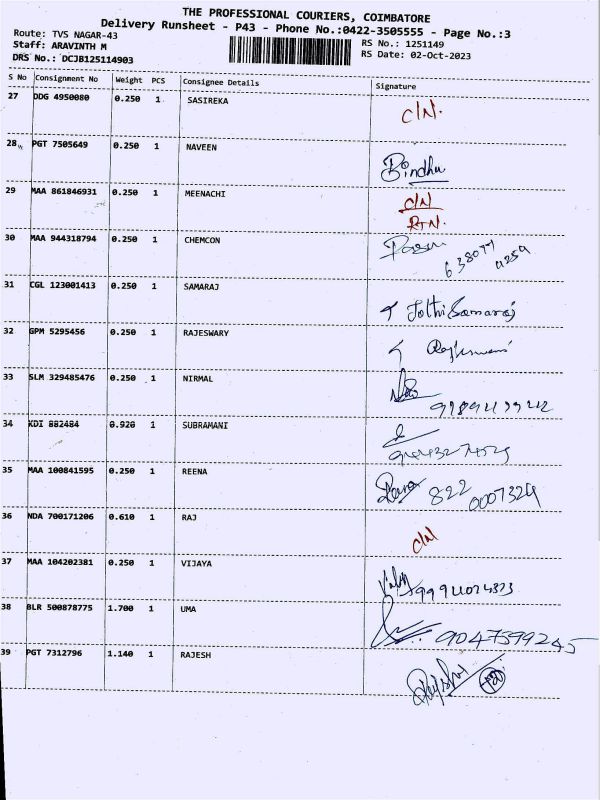 THE PROFESSIONAL COURIERS, COIMBATORE
Delivery Runsheet - P43 - Phone No.:0422-3505555 - Page No.:3
Route: TVS NAGAR-43
RS No.: 1251149
Staff: ARAVINTH M
RS Date: 02-Oct-2023
DRS No.: DCJB125114903
S No Consignment No Weight PCS Consignee Details Signature
27 DDG 4950080 0.250 1 SASIREKA C/N.
28 PGT 7505649 0.250 1 NAVEEN Bindhu
29 MAA 861846931 0.250 1 MEENACHI C/N
RTN.
30 MAA 944318794 0.250 1 CHEMCON
31 CGL 123001413 0.250 1 SAMARAJ Jothi Samaraj
32 GPM 5295456 0.250 1 RAJESWARY Rajeswari
33 SLM 329485476 0.250 1 NIRMAL
34 KDI 882484 0.920 1 SUBRAMANI
35 MAA 100841595 0.250 1 REENA Reena 822 0007324
36 NDA 700171206 0.610 1 RAJ C/N
37 MAA 104202381 0.250 1 VIJAYA
38 BLR 500878775 1.700 1 UMA 9047599245
39 PGT 7312796 1.140 1 RAJESH